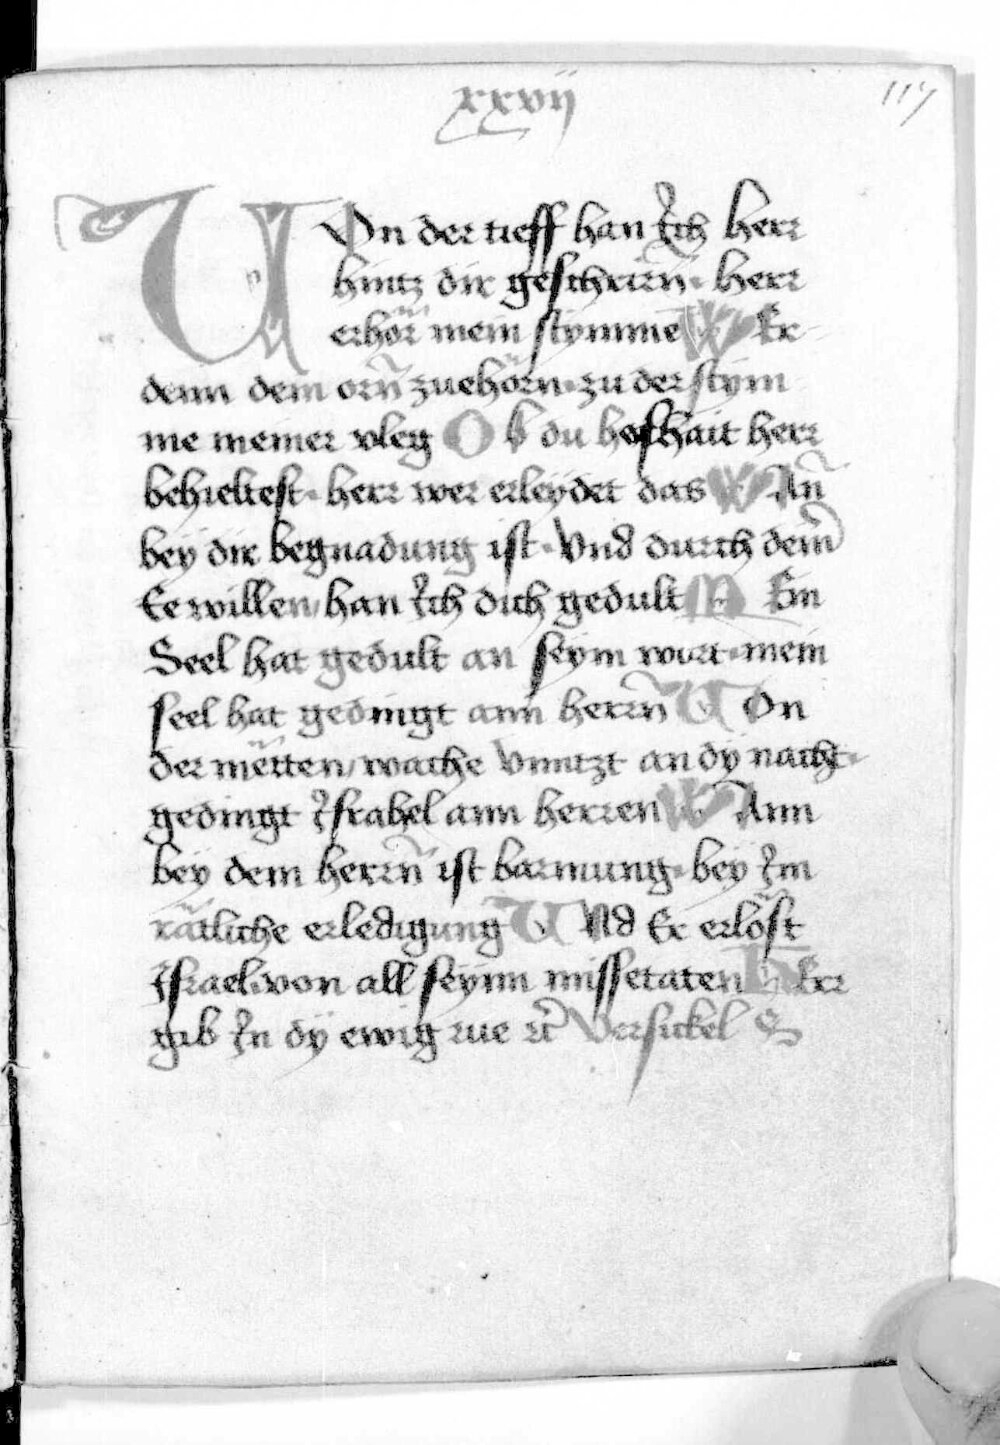 xxvij
117
Von der tieff han Ich herr
hintz dir geschrirn̄. herr
erhör mein stymme W Er
denn dein orn̄ zuehörn. zu der stym
me meiner vleg O b du boshait herr
behieltest. herr wer erleydet das W An̄
bey dir begnadung ist. Vnd durch dein̄
Ee willen han Ich dich gedult M Ein
Seel hat gedult an seym wort. mein
seel hat gedingt ann herrn̄ V On
der metten wache vnntzt an dy nacht.
gedingt Israhel ann herren W Ann
bey dem herrn̄ ist barmung. bey Im
rätliche erledigung V Nd Er erlöst
Israel. von all seynn missetaten H Err
gib In dy ewig rue Versickel